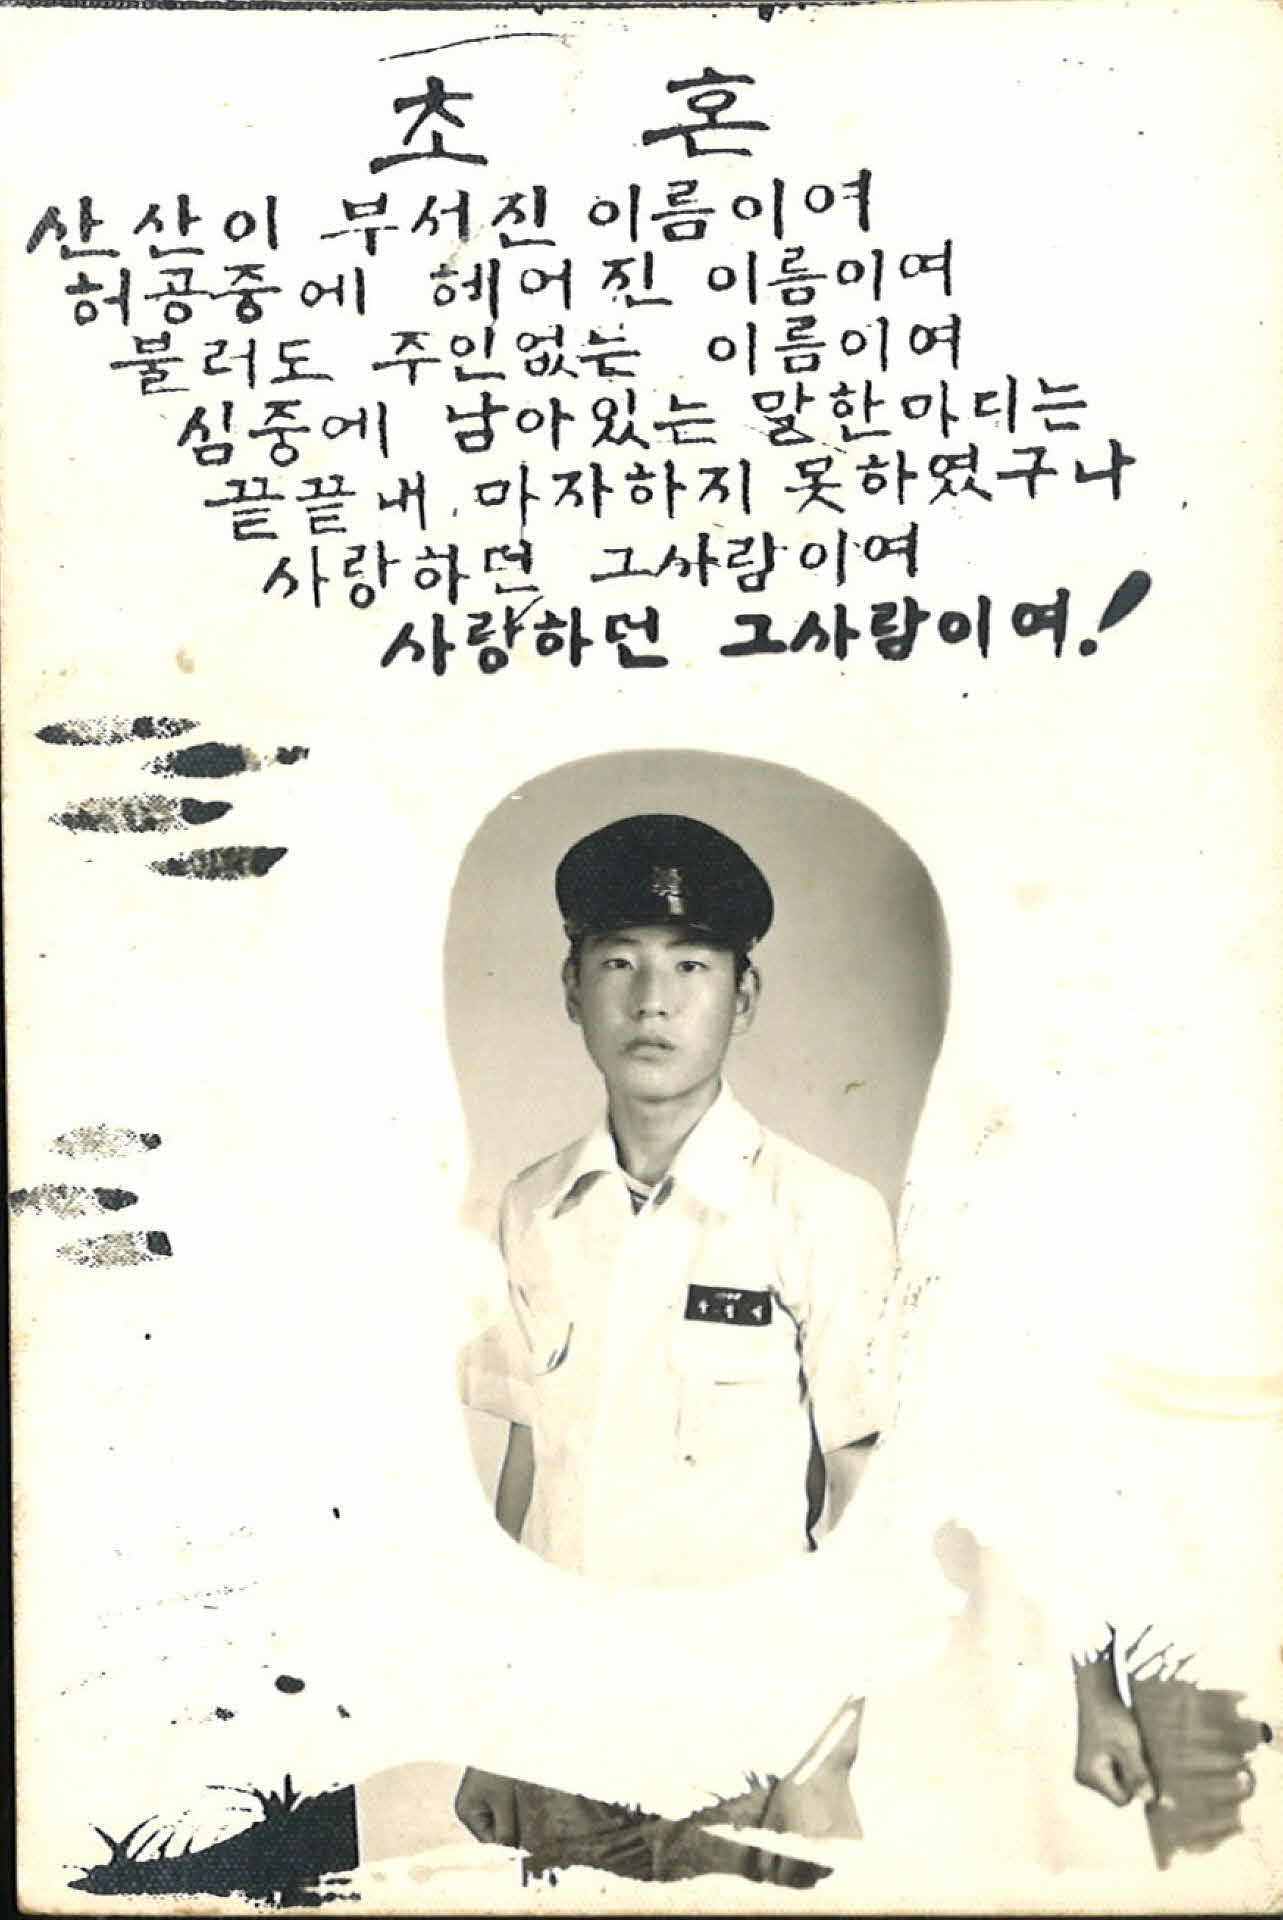 초 혼
산산이 부서진 이름이여
허공중에 헤어진 이름이여
불러도 주인없는 이름이여
심중에 남아있는 말한마디는
끝끝내 마자하지 못하였구나
사랑하던 그사람이여
사랑하던 그사람이여!